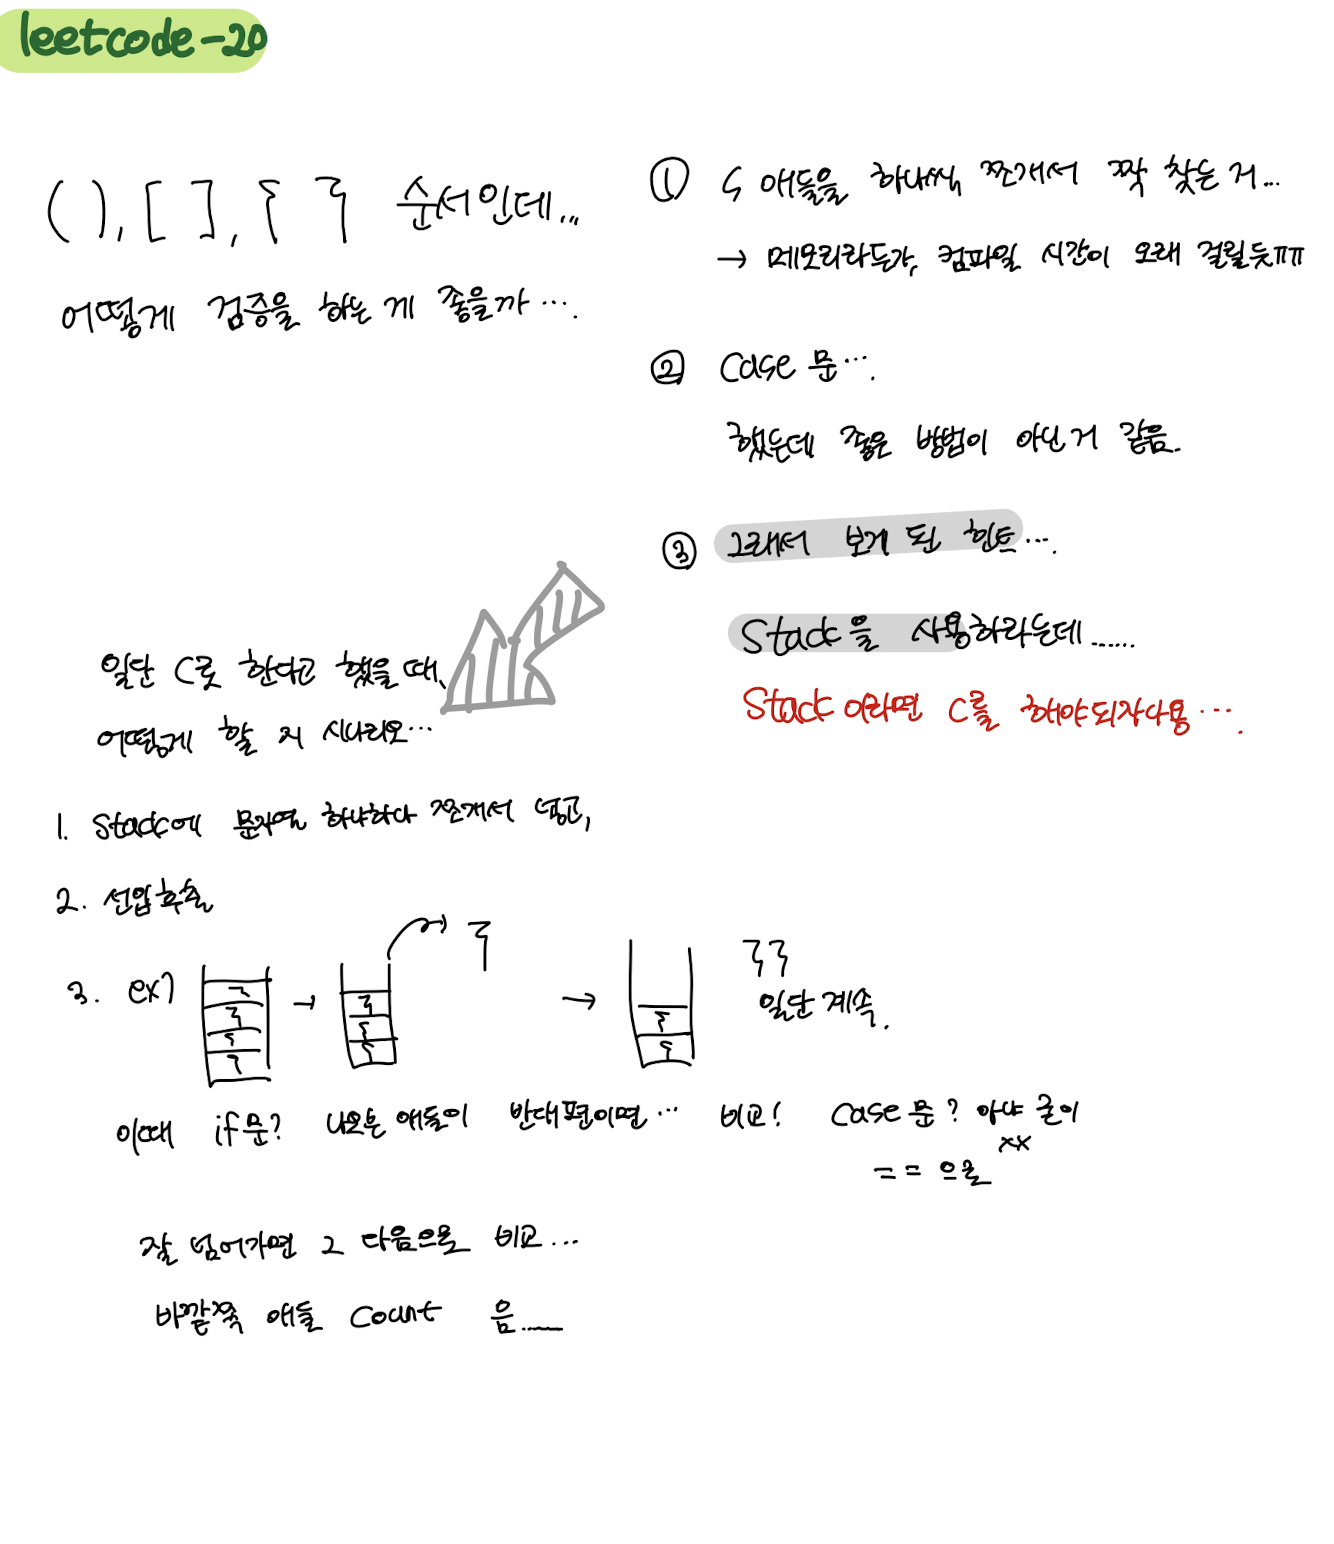 leetcode-20
( ), [ ], { } 순서인데...
어떻게 검증을 하는 게 좋을까....
① 애들을 하나씩 쪼개서 짝 찾는 거...
→ 메모리라든가, 컴파일 시간이 오래 걸릴듯ㅠㅠ
② case 문....
했는데 좋은 방법이 아닌 거 같음.
③ 그래서 보게 된 힌트....
Stack을 사용하라는데......
Stack이라면 C를 해야되자나용....
일단 C로 한다고 했을 때,
어떻게 할 지 시나리오...
1. Stack에 문자열 하나하나 쪼개서 넣고,
2. 선입후출
3. ex) } } { } → } { { } → { { }}
일단 계속.
이때 if문? 나오는 애들이 반대편이면... 비교! case문? 아냐 굳이 xx
== 으로
잘 넘어가면 2 다음으로 비교...
바깥쪽 애들 count 음......